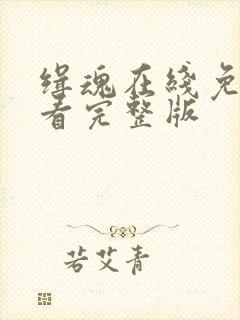 缉魂在线免
看完整版
若艾青